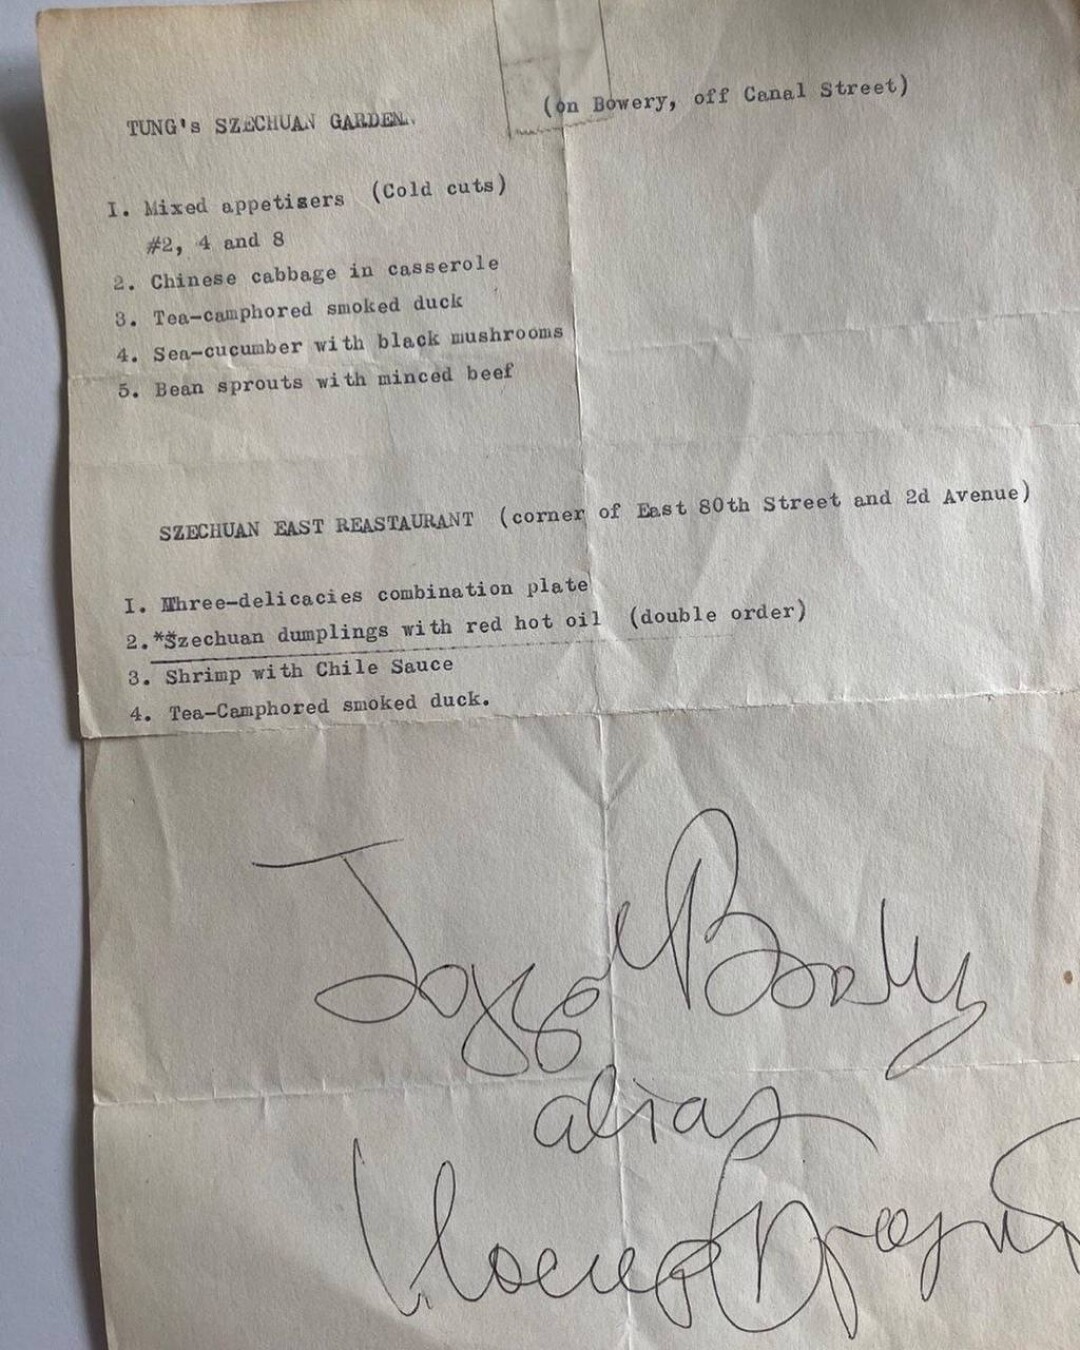 TUNG's SZECHUAN GARDEN. (on Bowery, off Canal Street)
I. Mixed appetisers (Cold cuts)
#2, 4 and 8
2. Chinese cabbage in casserole
3. Tea-camphored smoked duck
4. Sea-cucumber with black mushrooms
5. Bean sprouts with minced beef
SZECHUAN EAST REASTAURANT (corner of East 80th Street and 2d Avenue)
I. Three-delicacies combination plate
2.**Szechuan dumplings with red hot oil (double order)
3. Shrimp with Chile Sauce
4. Tea-Camphored smoked duck.
alias